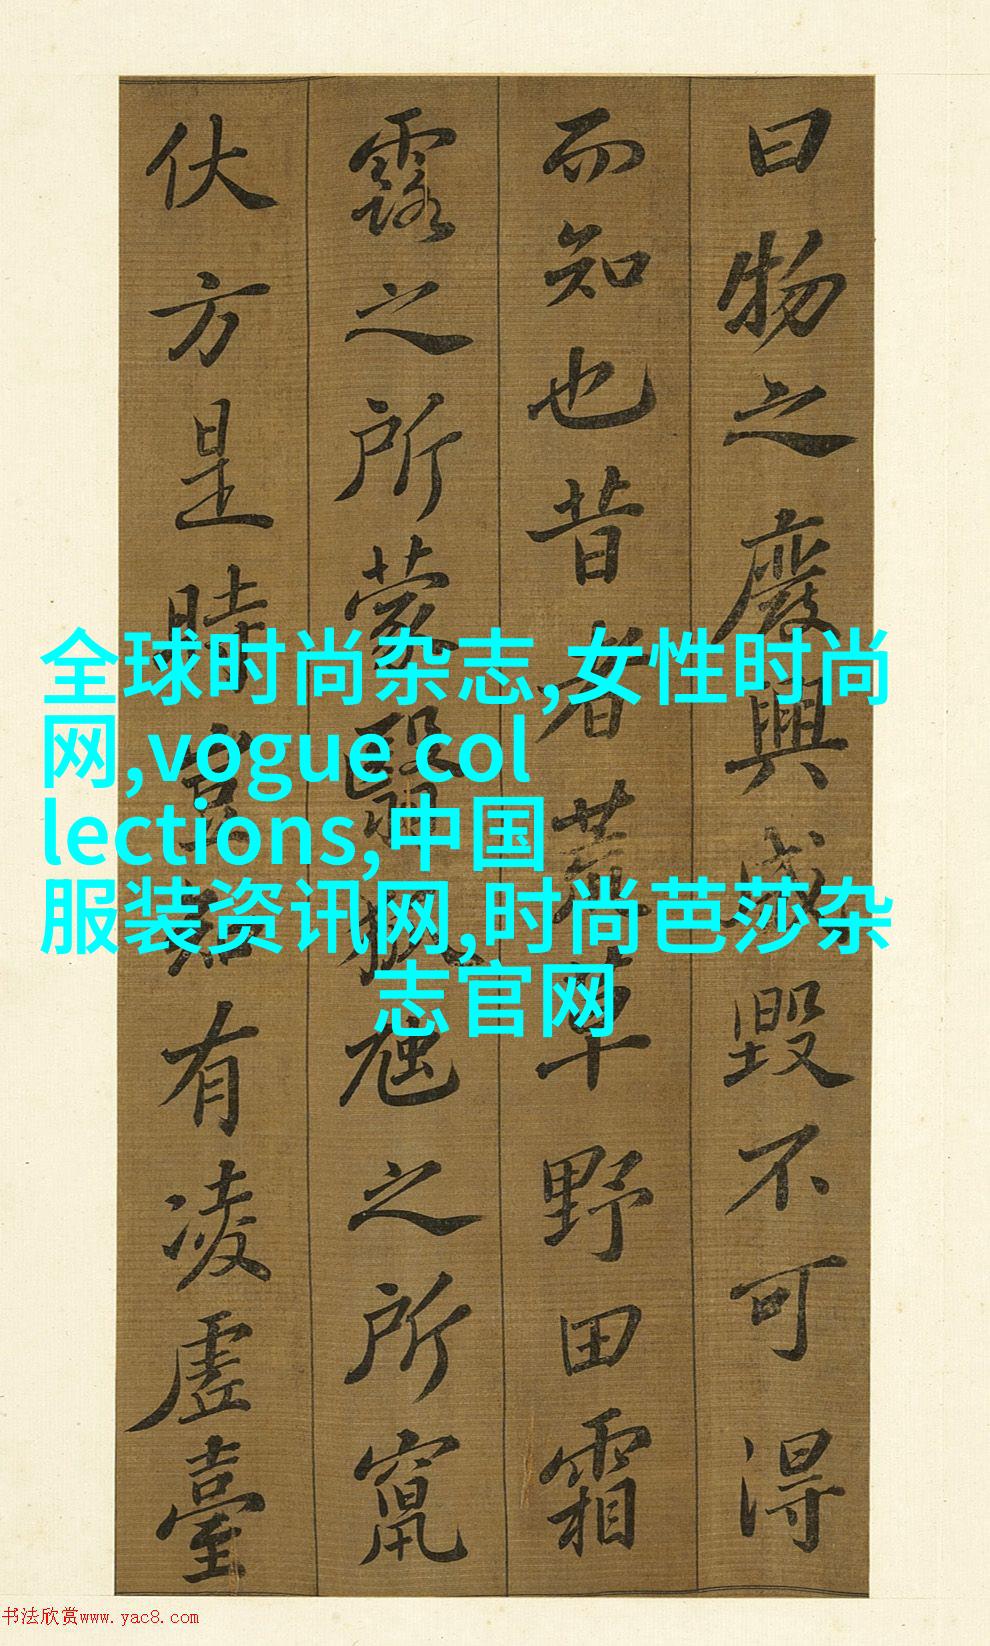 曰物之廢興成毀不可得
而知也昔者荒草野田霜
露之所蒙翳狐虺之所竄
伏方是時豈知有凌虛臺
全球时尚杂志,女性时尚
网,vogue col
lections,中国
服装资讯网,时尚芭莎杂
志官网
书法欣赏www.yac8.com